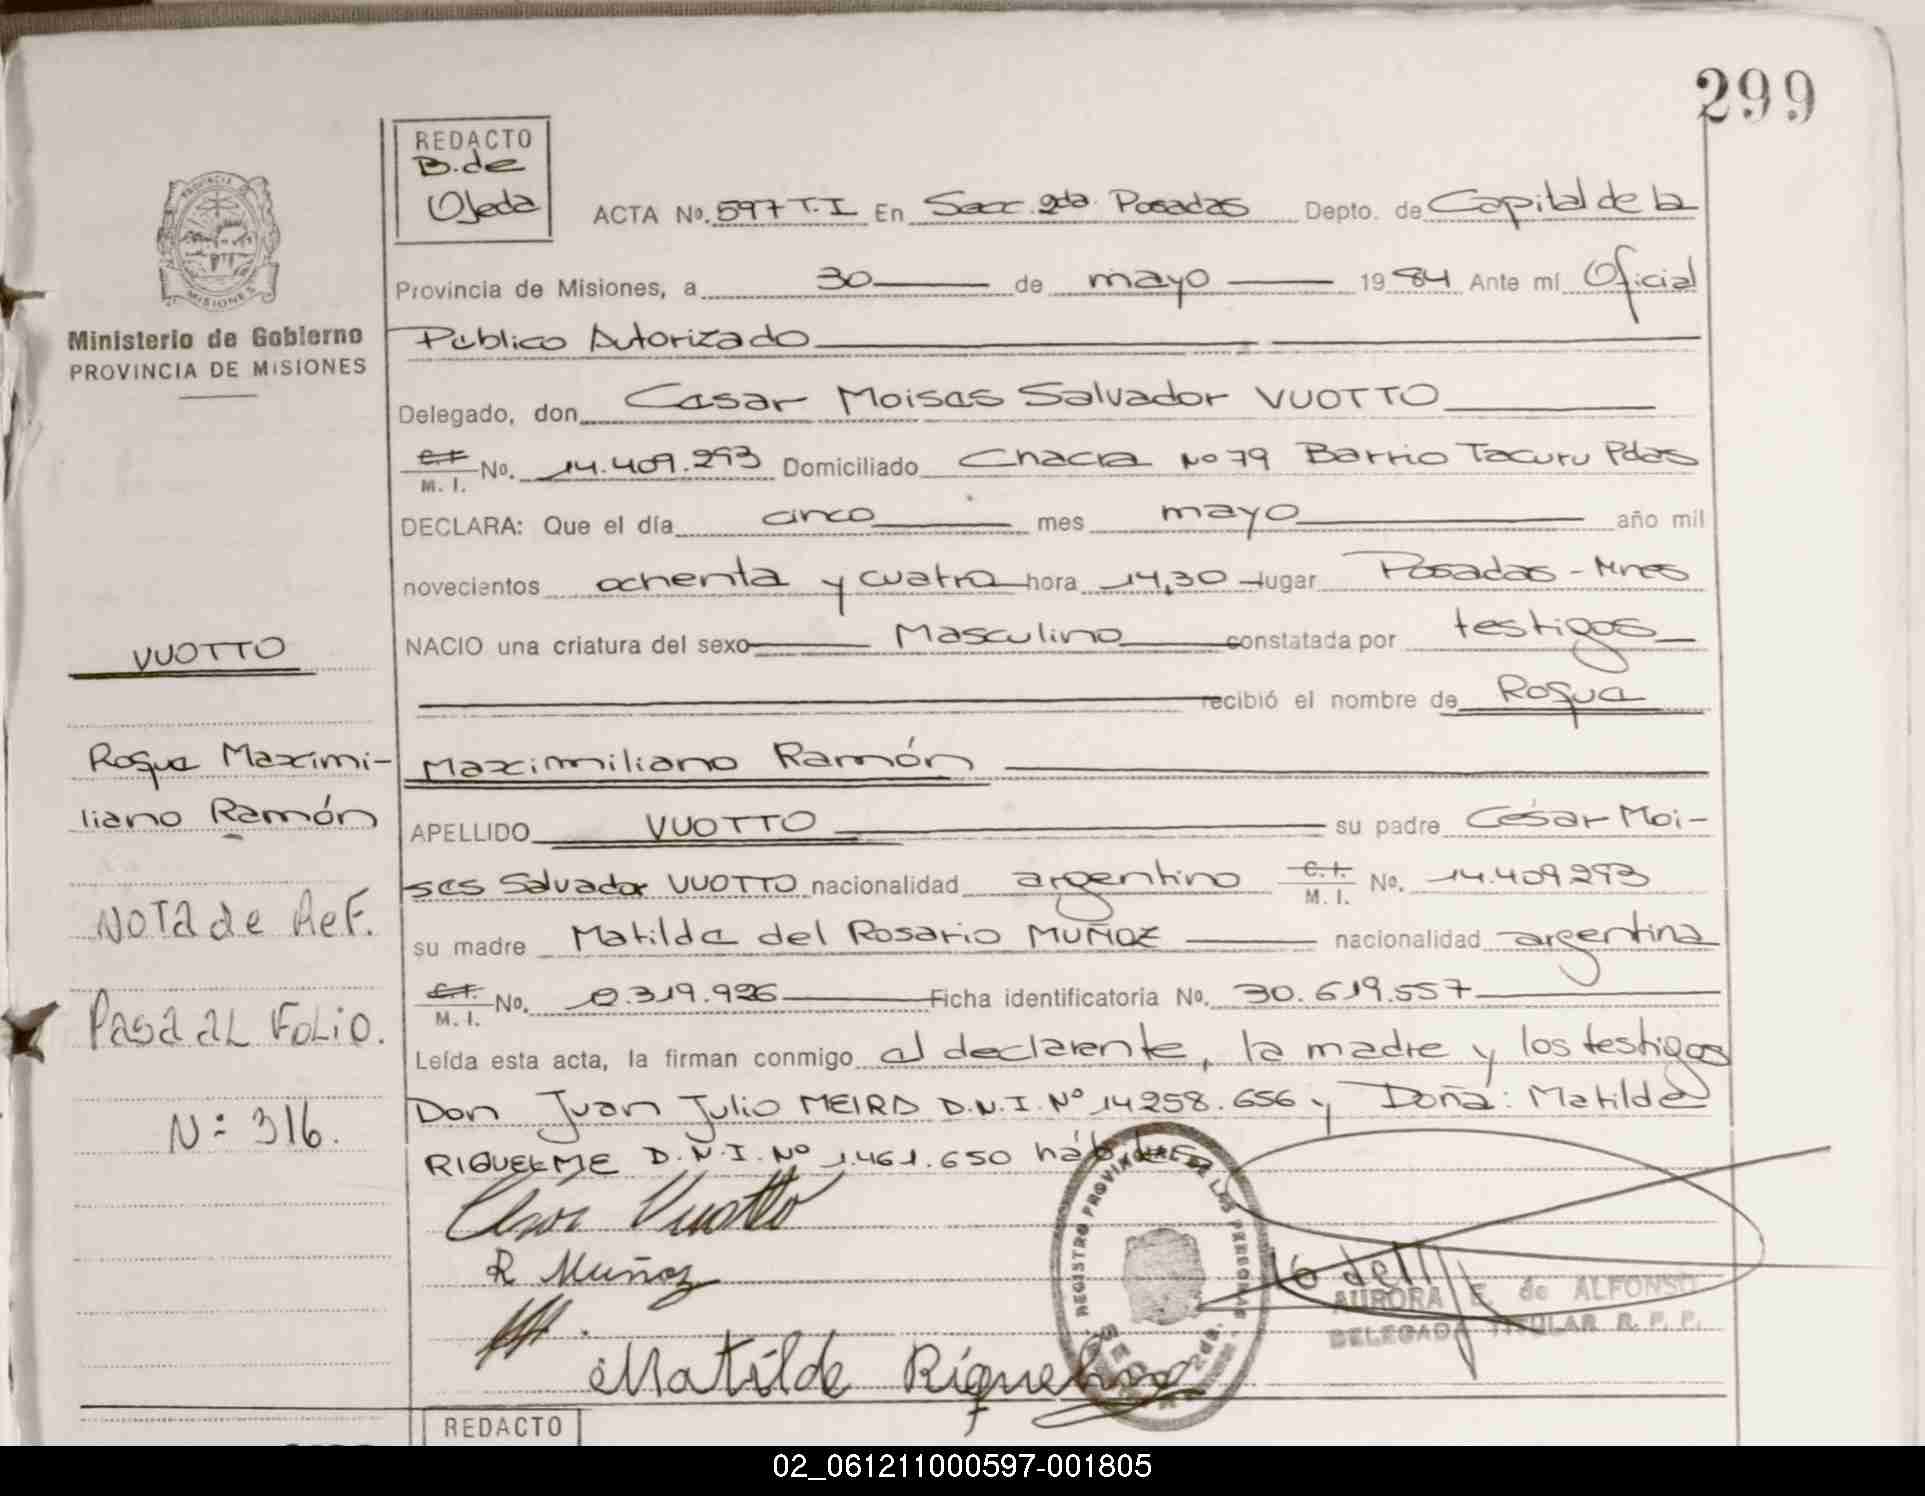 299
REDACTO
B. de
Ojeda
PROVINCIA DE
MISIONES
Ministerio de Gobierno
PROVINCIA DE MISIONES
ACTA No. 597 T.I En Secc. 2da. Posadas Depto. de Capital de la
Provincia de Misiones, a 30 de mayo 1984 Ante mí Oficial
Público Autorizado
Delegado, don Cesar Moises Salvador VUOTTO
C.I. M. I. No. 14.409.293 Domiciliado Chacra No 79 Barrio Tacuru Pdas
DECLARA: Que el día cinco mes mayo año mil
novecientos ochenta y cuatro hora 14,30 lugar Posadas - Mnes
NACIO una criatura del sexo Masculino constatada por testigos
recibió el nombre de Roque
Maximiliano Ramón
APELLIDO VUOTTO su padre César Moi-
ses Salvador VUOTTO nacionalidad argentino C.I. M. I. No. 14.409293
su madre Matilde del Rosario MUÑOZ nacionalidad argentina
C.I. M. I. No. 319.926 Ficha identificatoria No. 30.619.557
Leída esta acta, la firman conmigo el declarente, la madre y los testigos
Don Juan Julio MEIRA D.N.I. Nº 14258.656 y Doña: Matilde
RIQUELME D.N.I. Nº 1.461.650 hábiles
VUOTTO
Roque Maximi-
liano Ramón
NOTA de ReF.
PASA AL FOLIO.
Nº 316.
Cesar Vuotto
R Muñoz
Matilde Riquelme
REGISTRO PROVINCIAL DE LAS PERSONAS
2da.
AURORA E. de ALFONSO
DELEGADA TITULAR R. P. P.
REDACTO
02_061211000597-001805